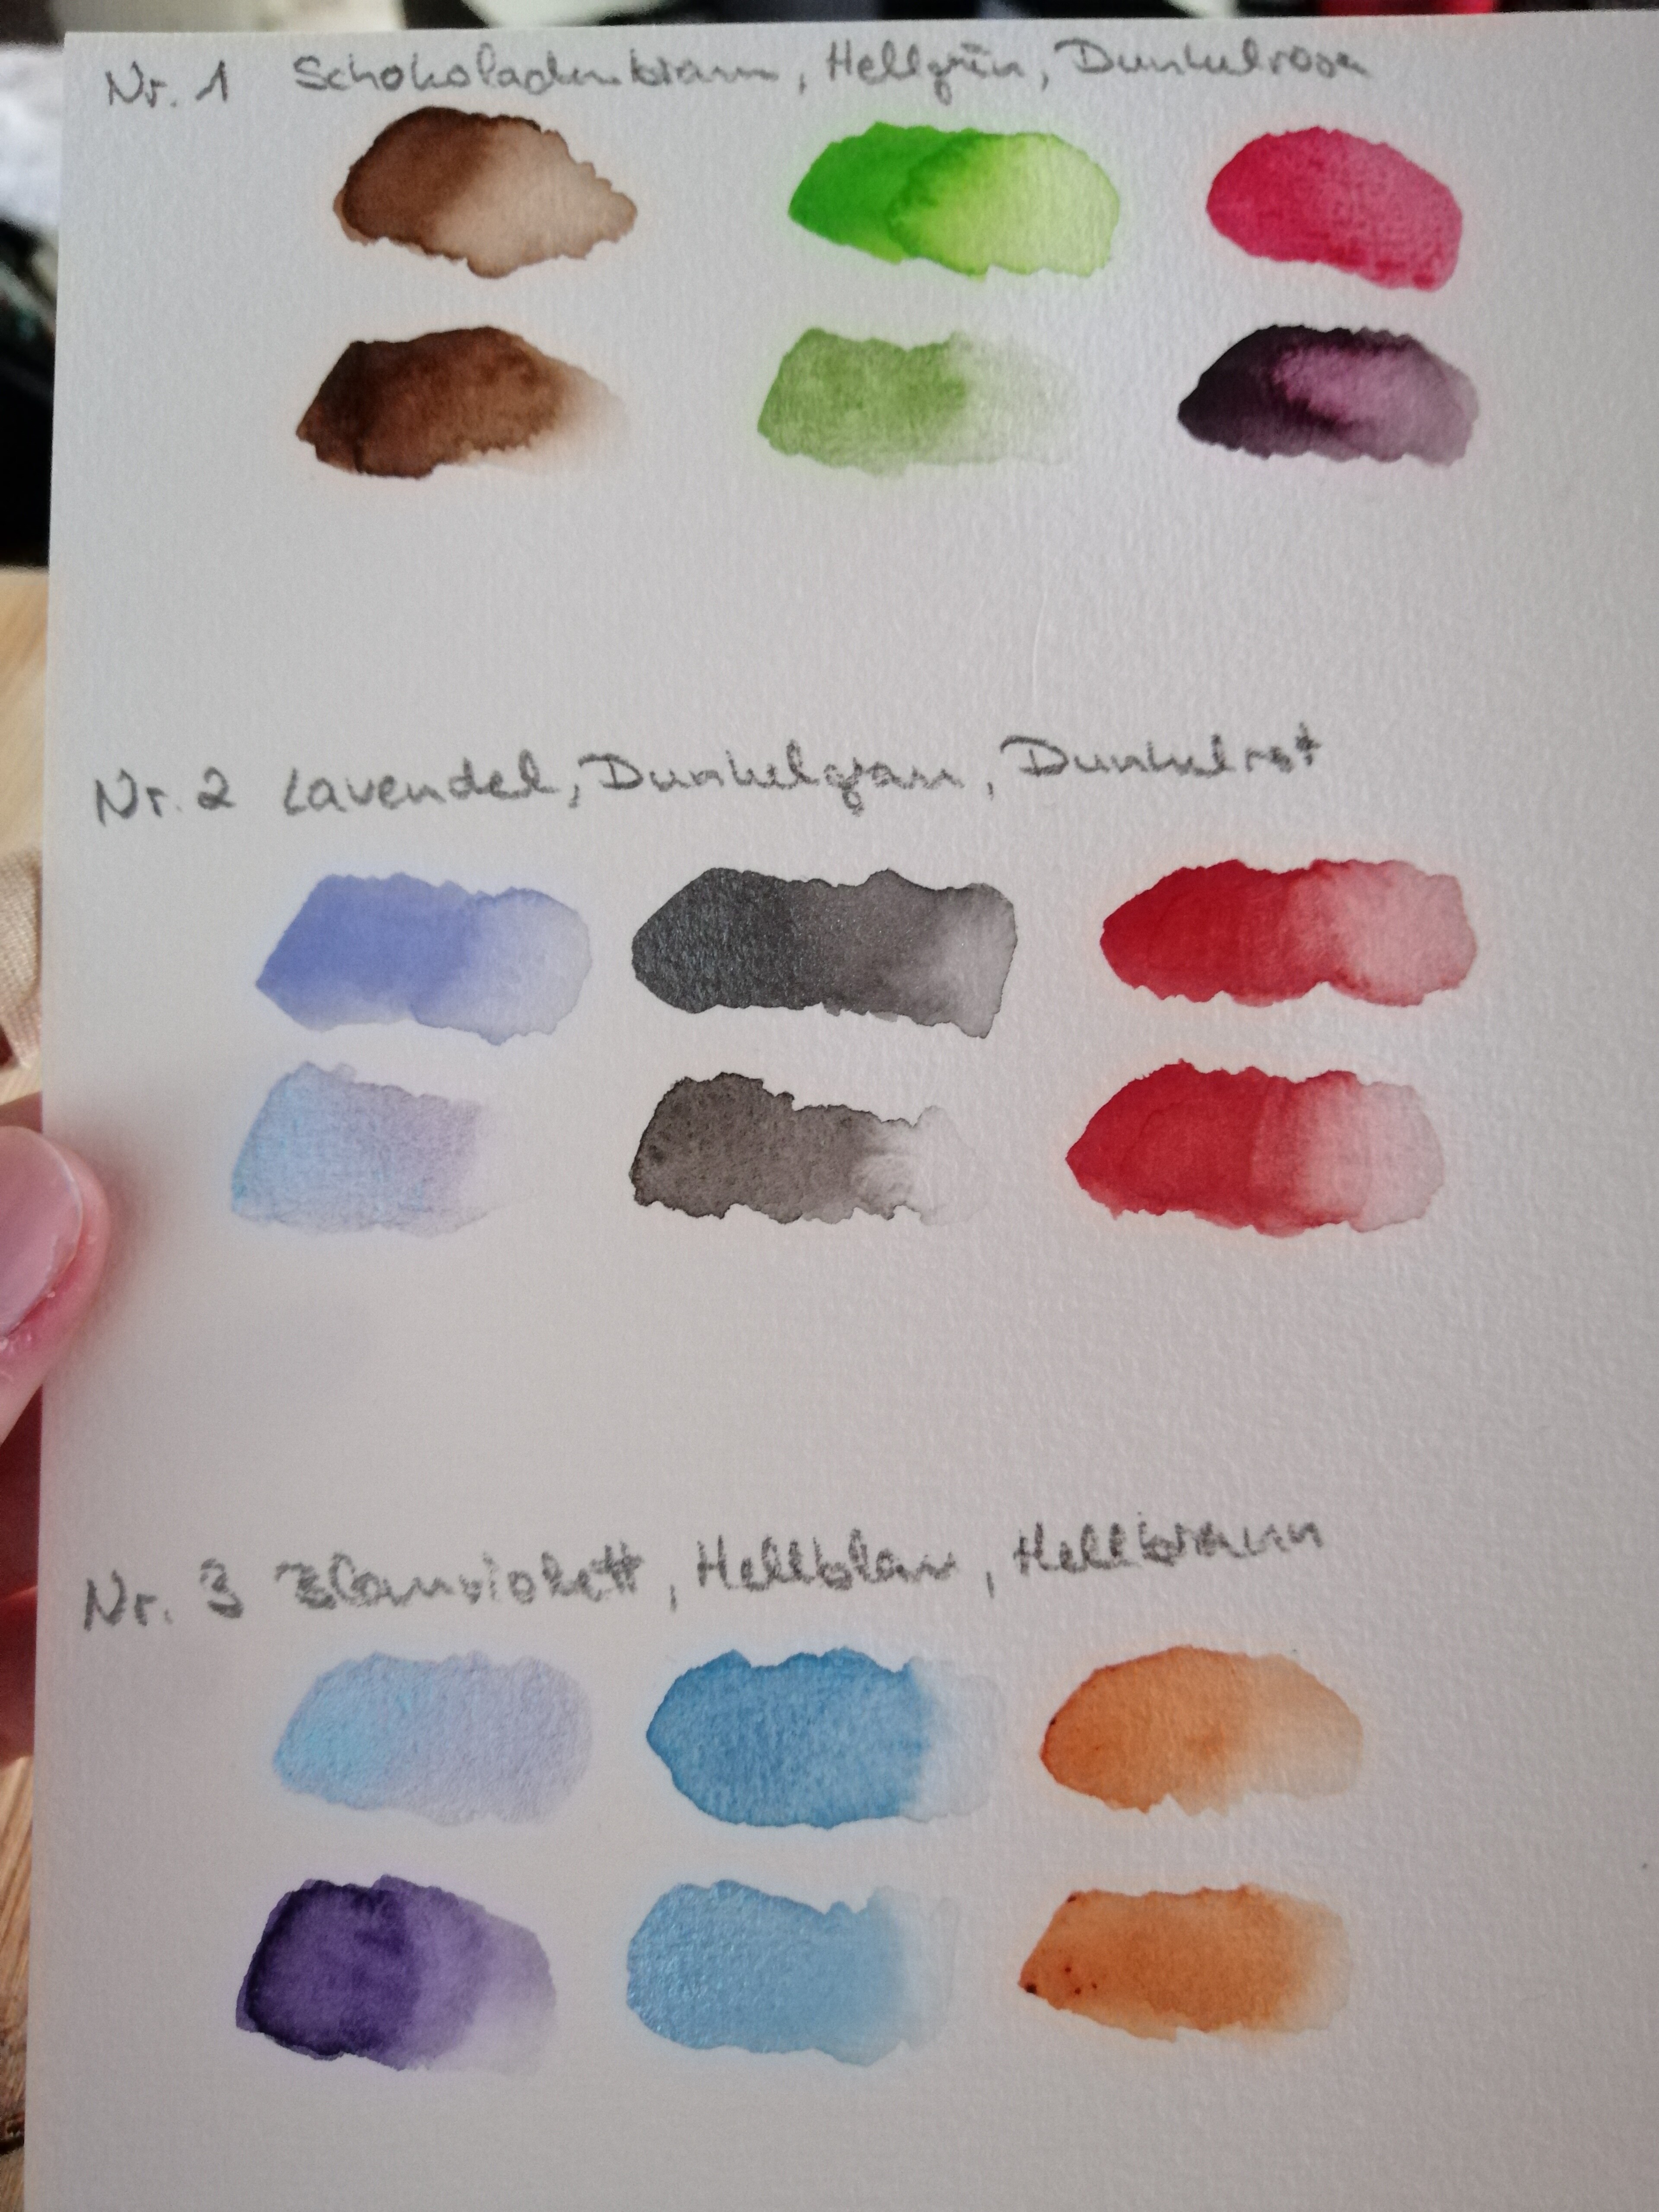 Nr. 1 Schokoladenbraun, Hellgrün, Dunkelrosa
Nr. 2 Lavendel, Dunkelgrau, Dunkelrot
Nr. 3 Blauviolett, Hellblau, Hellbraun